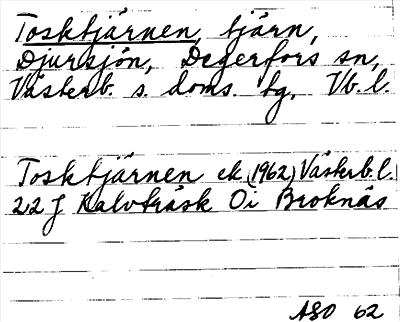 Tosktjärnen, tjärn,
Djursjön, Degerfors sn,
Västerb. s. doms. tg, Vb. l.
Tosktjärnen ek (1962) Västerb. l.
22 J Kalvträsk Oi Broknäs
ASO 62